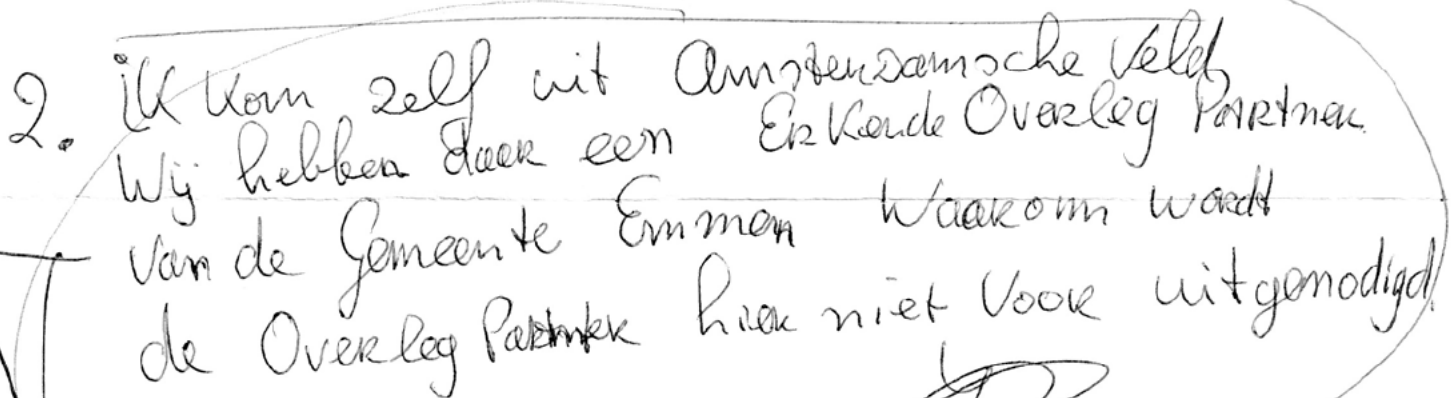 2. iK Kom zelf uit Amsterdamsche Veld,
Wij hebben daar een ErKende Overleg Partner.
Van de Gemeente Emmen Waarom wordt
de Overleg Partner hier niet Voor uitgenodigd